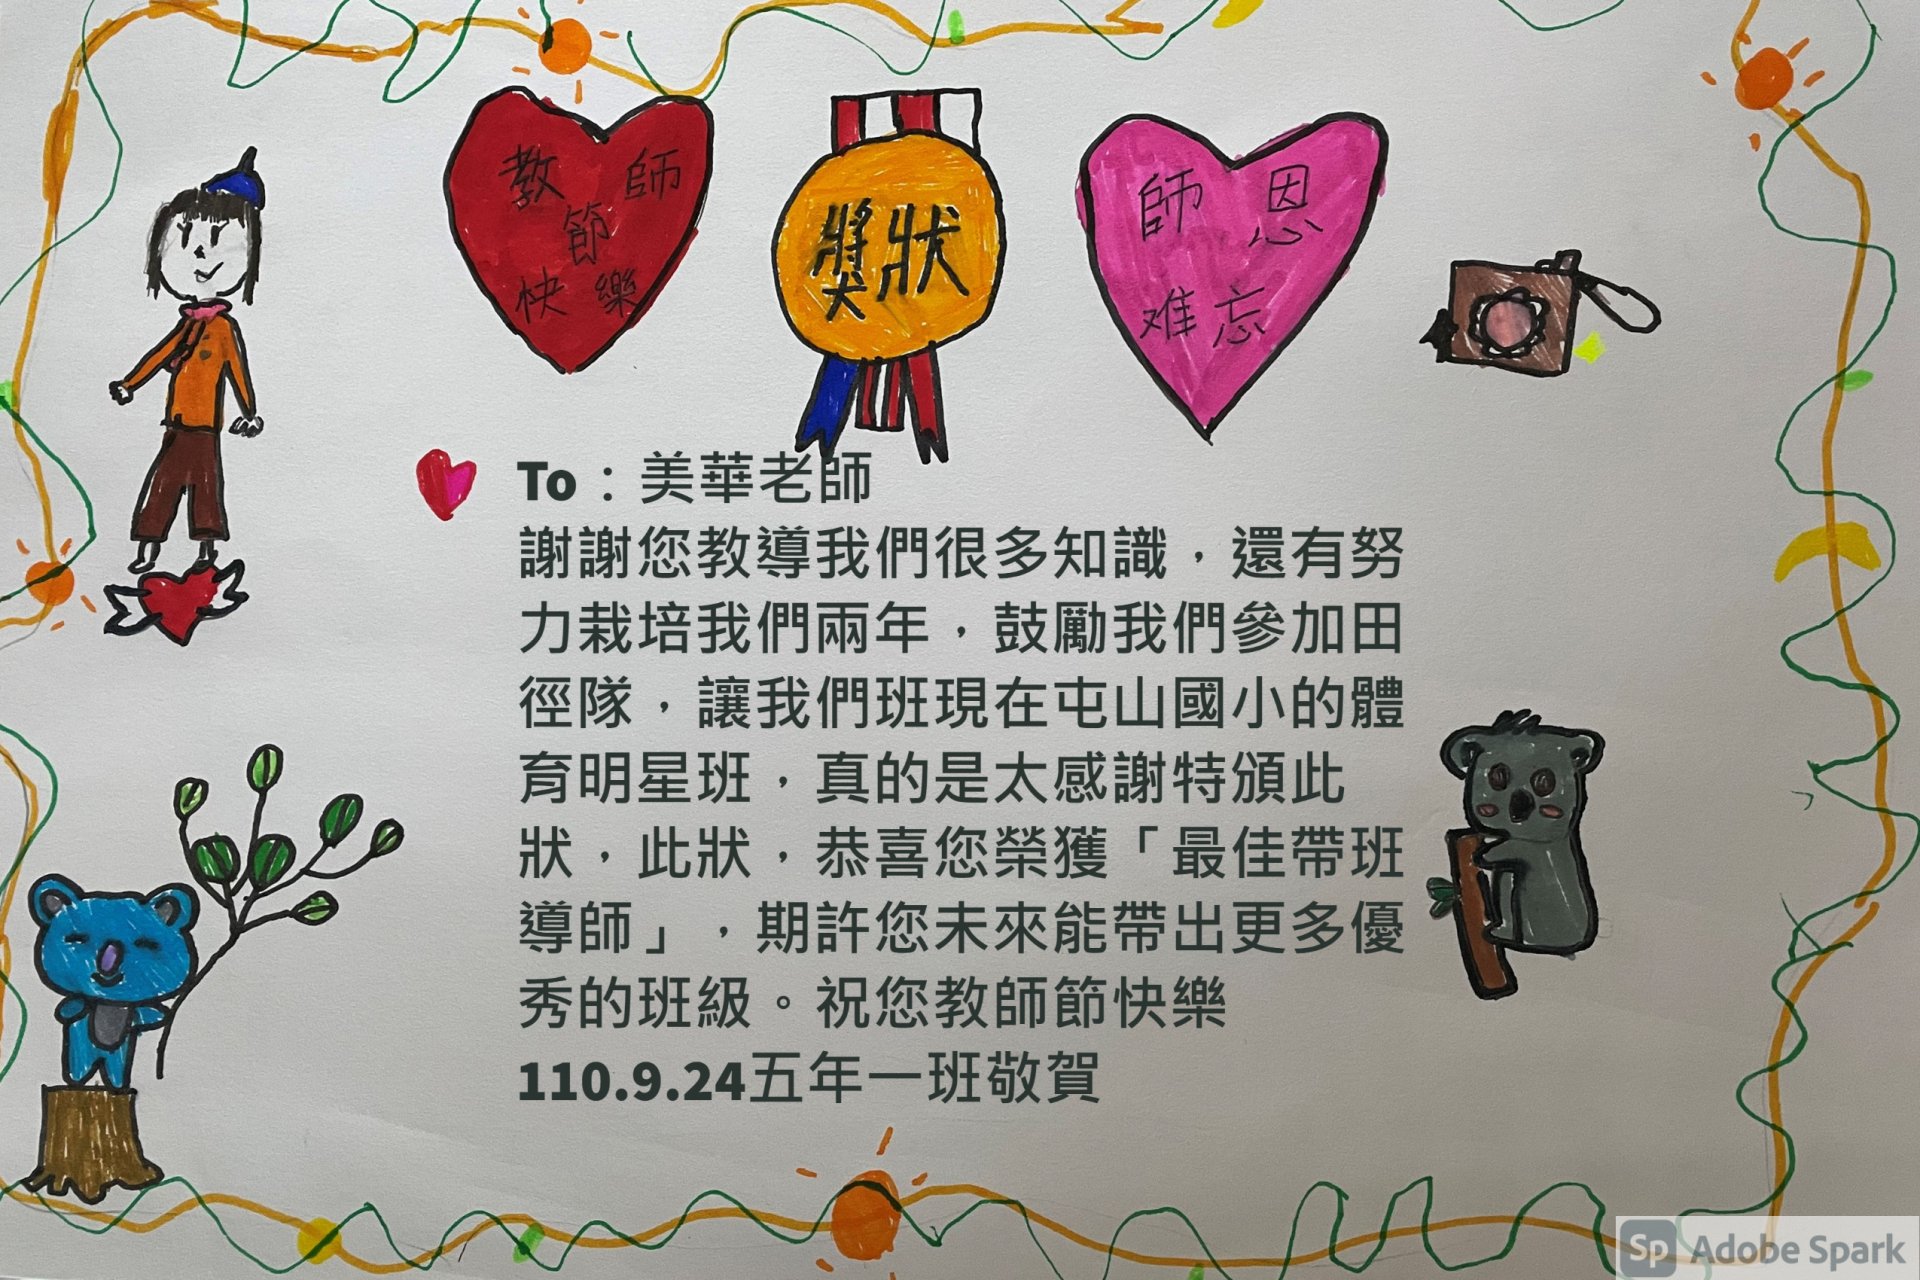 教師
節
快樂
獎狀
師恩
难忘
To：美華老師
謝謝您教導我們很多知識，還有努
力栽培我們兩年，鼓勵我們參加田
徑隊，讓我們班現在屯山國小的體
育明星班，真的是太感謝特頒此
狀，此狀，恭喜您榮獲「最佳帶班
導師」，期許您未來能帶出更多優
秀的班級。祝您教師節快樂
110.9.24五年一班敬賀
Sp Adobe Spark